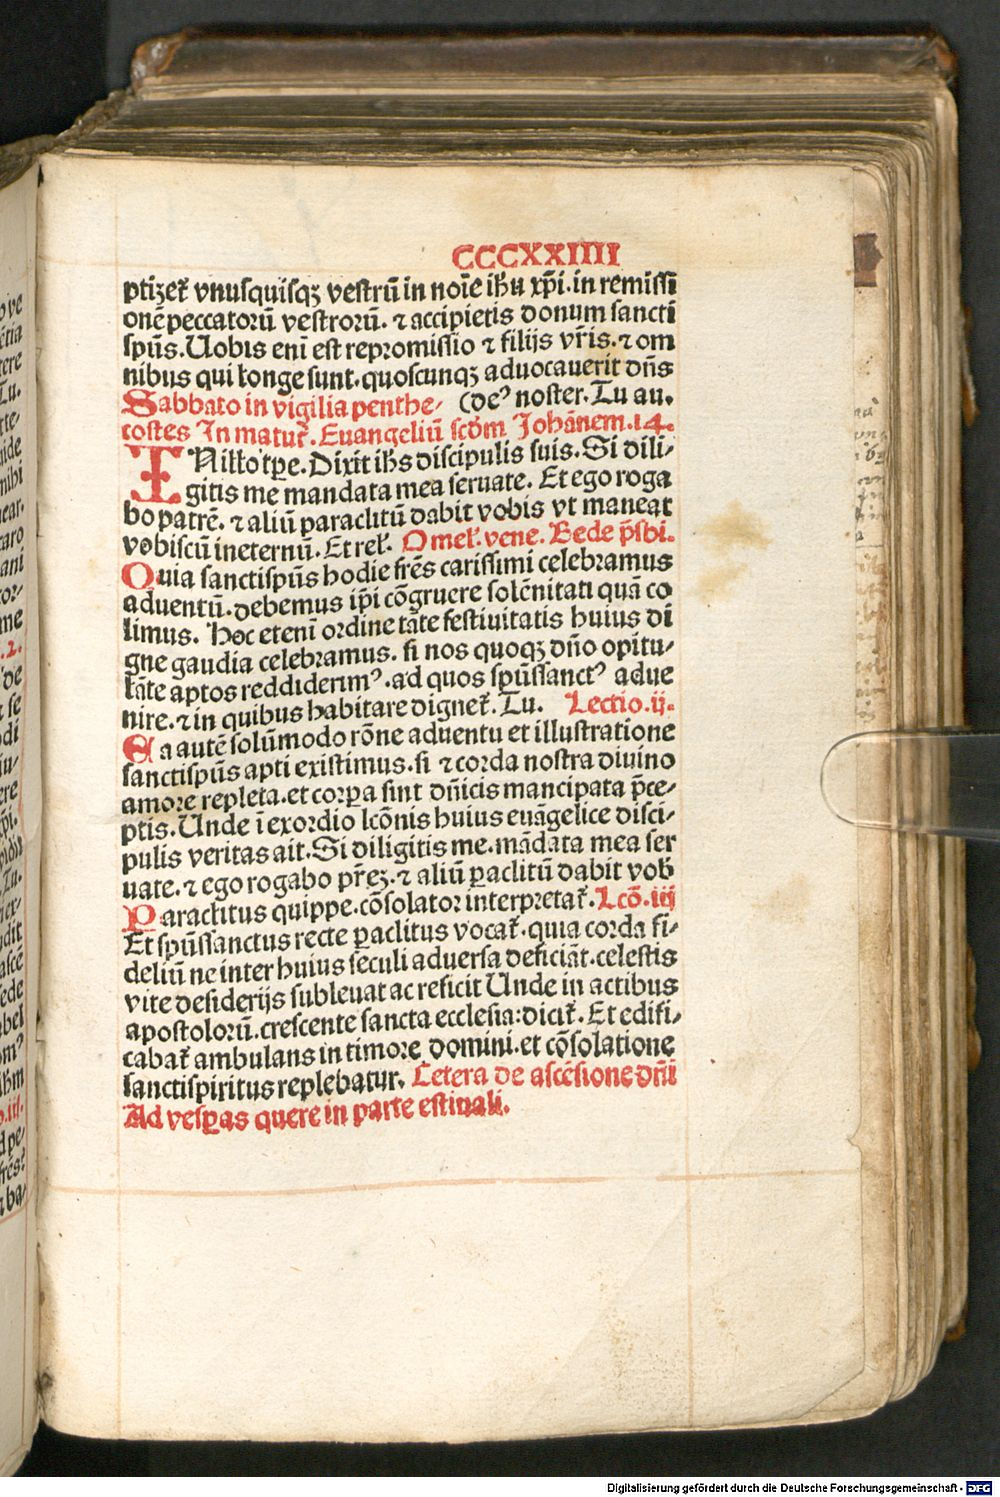 CCCXXIIII
ptizet᷑ vnusquisqꝫ vestrū in noīe ih̄u xp̄i. in remissi
onē peccatorū vestrorū. ⁊ accipietis donum sancti
spūs. Uobis enī est repromissio ⁊ filijs vr̄is. ⁊ om
nibus qui longe sunt. quoscunqꝫ aduocauerit dn̄s
Sabbato in vigilia penthe⸗ (deꝰ noster. Tu au.
costes In matut᷑. Euangeliū scd̄m Johānem. 14.
IN illo tp̄e. Dixit ih̄s discipulis suis. Si dili⸗
gitis me mandata mea seruate. Et ego roga
bo patrē. ⁊ aliū paraclitū dabit vobis vt maneat
vobiscū in eternū. Et rel̕. Omel̕. vene. Bede p̄sbi.
Quia sanctispūs hodie fr̄es carissimi celebramus
aduentū. debemus ip̄i cōgruere solēnitati quā co
limus. Hoc etenī ordine tāte festiuitatis huius di
gne gaudia celebramus. si nos quoqꝫ dn̄o opitu⸗
lāte aptos reddiderimꝰ. ad quos spūssanctꝰ adue
nire. ⁊ in quibus habitare dignet᷑. Tu. Lectio. ij.
Ea autē solūmodo rōne aduentu et illustratione
sanctispūs apti existimus. si ⁊ corda nostra diuino
amore repleta. et corꝑa sint dn̄icis mancipata p̄ce⸗
ptis. Unde ī exordio lcōnis huius euāgelice disci⸗
pulis veritas ait. Si diligitis me. mādata mea ser
uate. ⁊ ego rogabo pr̄eꝫ. ⁊ aliū ꝑaclitū dabit vob̕
Paraclitus quippe. cōsolator interpretat᷑. Lcō. iij
Et spūssanctus recte ꝑaclitus vocat᷑. quia corda fi⸗
deliū ne inter huius seculi aduersa deficiāt. celestis
vite desiderijs subleuat ac reficit Unde in actibus
apostolorū. crescente sancta ecclesia: dicit᷑. Et edifi⸗
cabat᷑ ambulans in timore domini. et cōsolatione
sanctispiritus replebatur. Cetera de ascēsione dn̄i
Ad vesꝑas quere in parte estiuali.
Digitalisierung gefördert durch die Deutsche Forschungsgemeinschaft - DFG